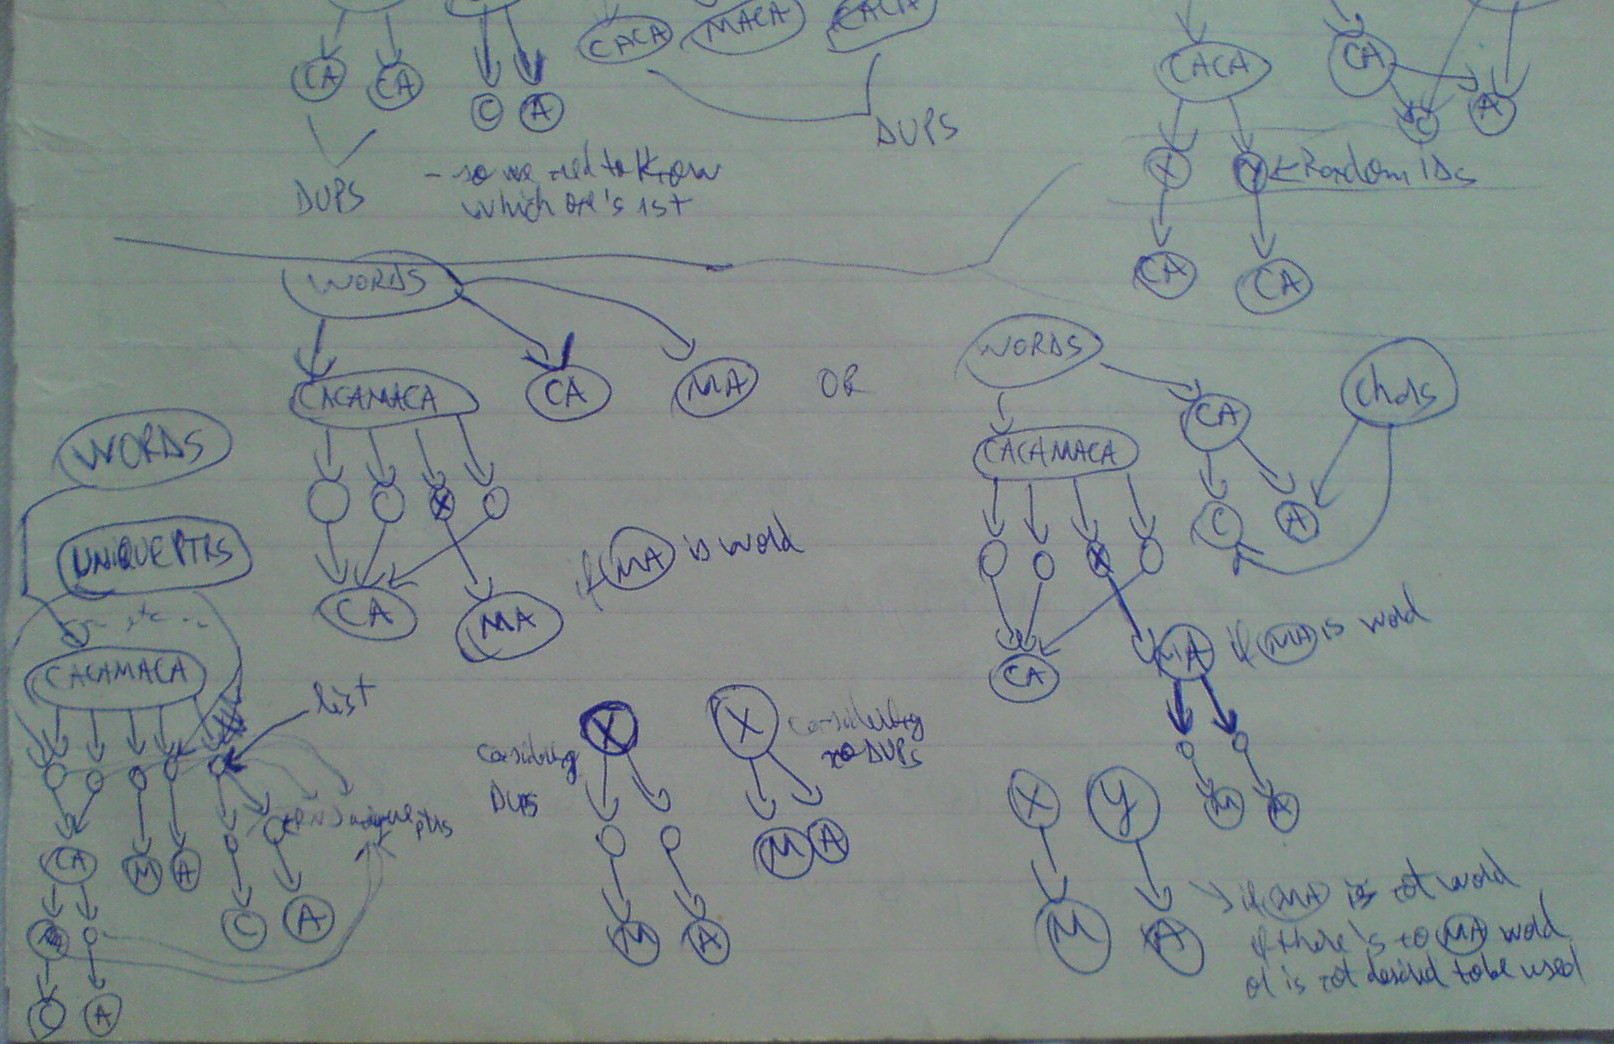 CACA
MACA
CACA
CA
CA
C
A
DUPS
DUPS
- so we need to know
which one's 1st
CACA
CA
C
A
X
Y
Random IDs
CA
CA
WORDS
CACAMACA
CA
MA
OR
X
CA
MA
if MA is word
WORDS
CACAMACA
CA
Chars
C
A
X
CA
MA
if MA is word
M
A
WORDS
UNIQUE PTRS
CACAMACA
list
CA
M
A
C
A
C
A
unique ptrs
X
considering
DUPS
M
A
X
considering
no DUPS
M
A
X
Y
M
A
if MA is not word
if there's no MA word
or is not desired to be used